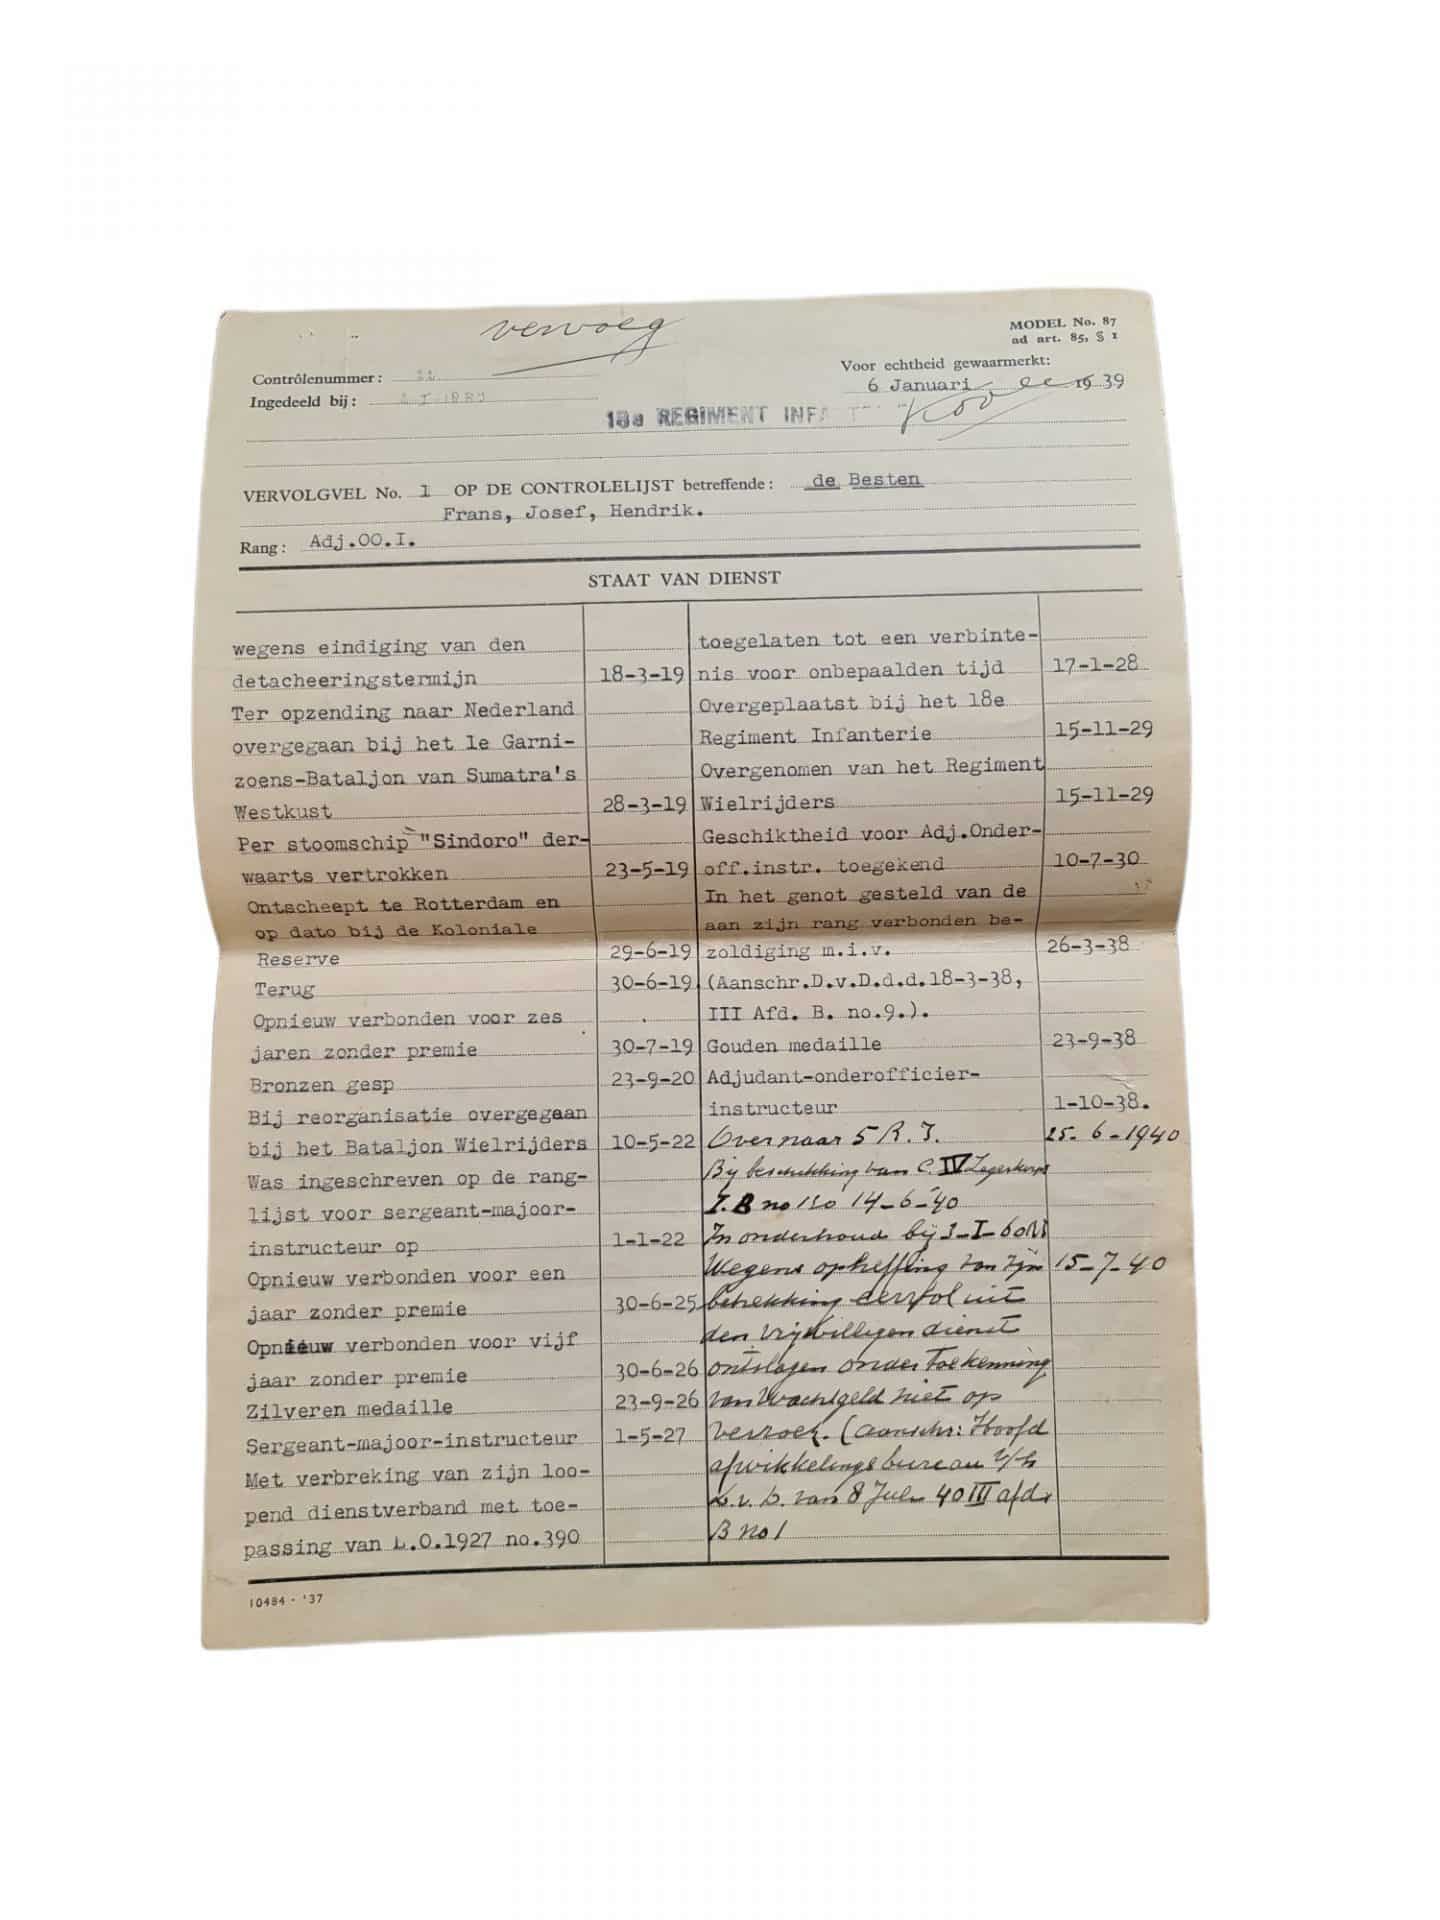 vervoeg
MODEL No. 87
ad art. 85, § 1
Voor echtheid gewaarmerkt:
Contrôlenummer:
6 Januari 1939
Ingedeeld bij:
18e REGIMENT INFA
VERVOLGVEL No. 1 OP DE CONTROLELIJST betreffende: de Besten
Frans, Josef, Hendrik.
Rang: Adj.OO.I.
STAAT VAN DIENST
wegens eindiging van den
detacheeringstermijn 18-3-19
Ter opzending naar Nederland
overgegaan bij het 1e Garni-
zoens-Bataljon van Sumatra's
Westkust 28-3-19
Per stoomschip "Sindoro" der-
waarts vertrokken 23-5-19
Ontscheept te Rotterdam en
op dato bij de Koloniale
Reserve 29-6-19
Terug 30-6-19
Opnieuw verbonden voor zes
jaren zonder premie 30-7-19
Bronzen gesp 23-9-20
Bij reorganisatie overgegaan
bij het Bataljon Wielrijders 10-5-22
Was ingeschreven op de rang-
lijst voor sergeant-majoor-
instructeur op 1-1-22
Opnieuw verbonden voor een
jaar zonder premie 30-6-25
Opnieuw verbonden voor vijf
jaar zonder premie 30-6-26
Zilveren medaille 23-9-26
Sergeant-majoor-instructeur 1-5-27
Met verbreking van zijn loo-
pend dienstverband met toe-
passing van L.O.1927 no.390
toegelaten tot een verbinte-
nis voor onbepaalden tijd 17-1-28
Overgeplaatst bij het 18e
Regiment Infanterie 15-11-29
Overgenomen van het Regiment
Wielrijders 15-11-29
Geschiktheid voor Adj.Onder-
off.instr. toegekend 10-7-30
In het genot gesteld van de
aan zijn rang verbonden be-
zoldiging m.i.v. 26-3-38
(Aanschr.D.v.D.d.d.18-3-38,
III Afd. B. no.9.).
Gouden medaille 23-9-38
Adjudant-onderofficier-
instructeur 1-10-38.
Over naar 5 R.I. 25-6-1940
Bij beschikking van C. IV Legerkorps
I.B no 14-6-'40
In onderhoud bij
Wegens opheffing van zijn 15-7-40
betrekking eervol uit
den vrijwilligen dienst
ontslagen onder toekenning
van wachtgeld niet op
verzoek. (aanschr: Hoofd
afwikkelingsbureau v/h
D.v.D. van 8 Juli 40 III afd.
B no 1
10484 - '37